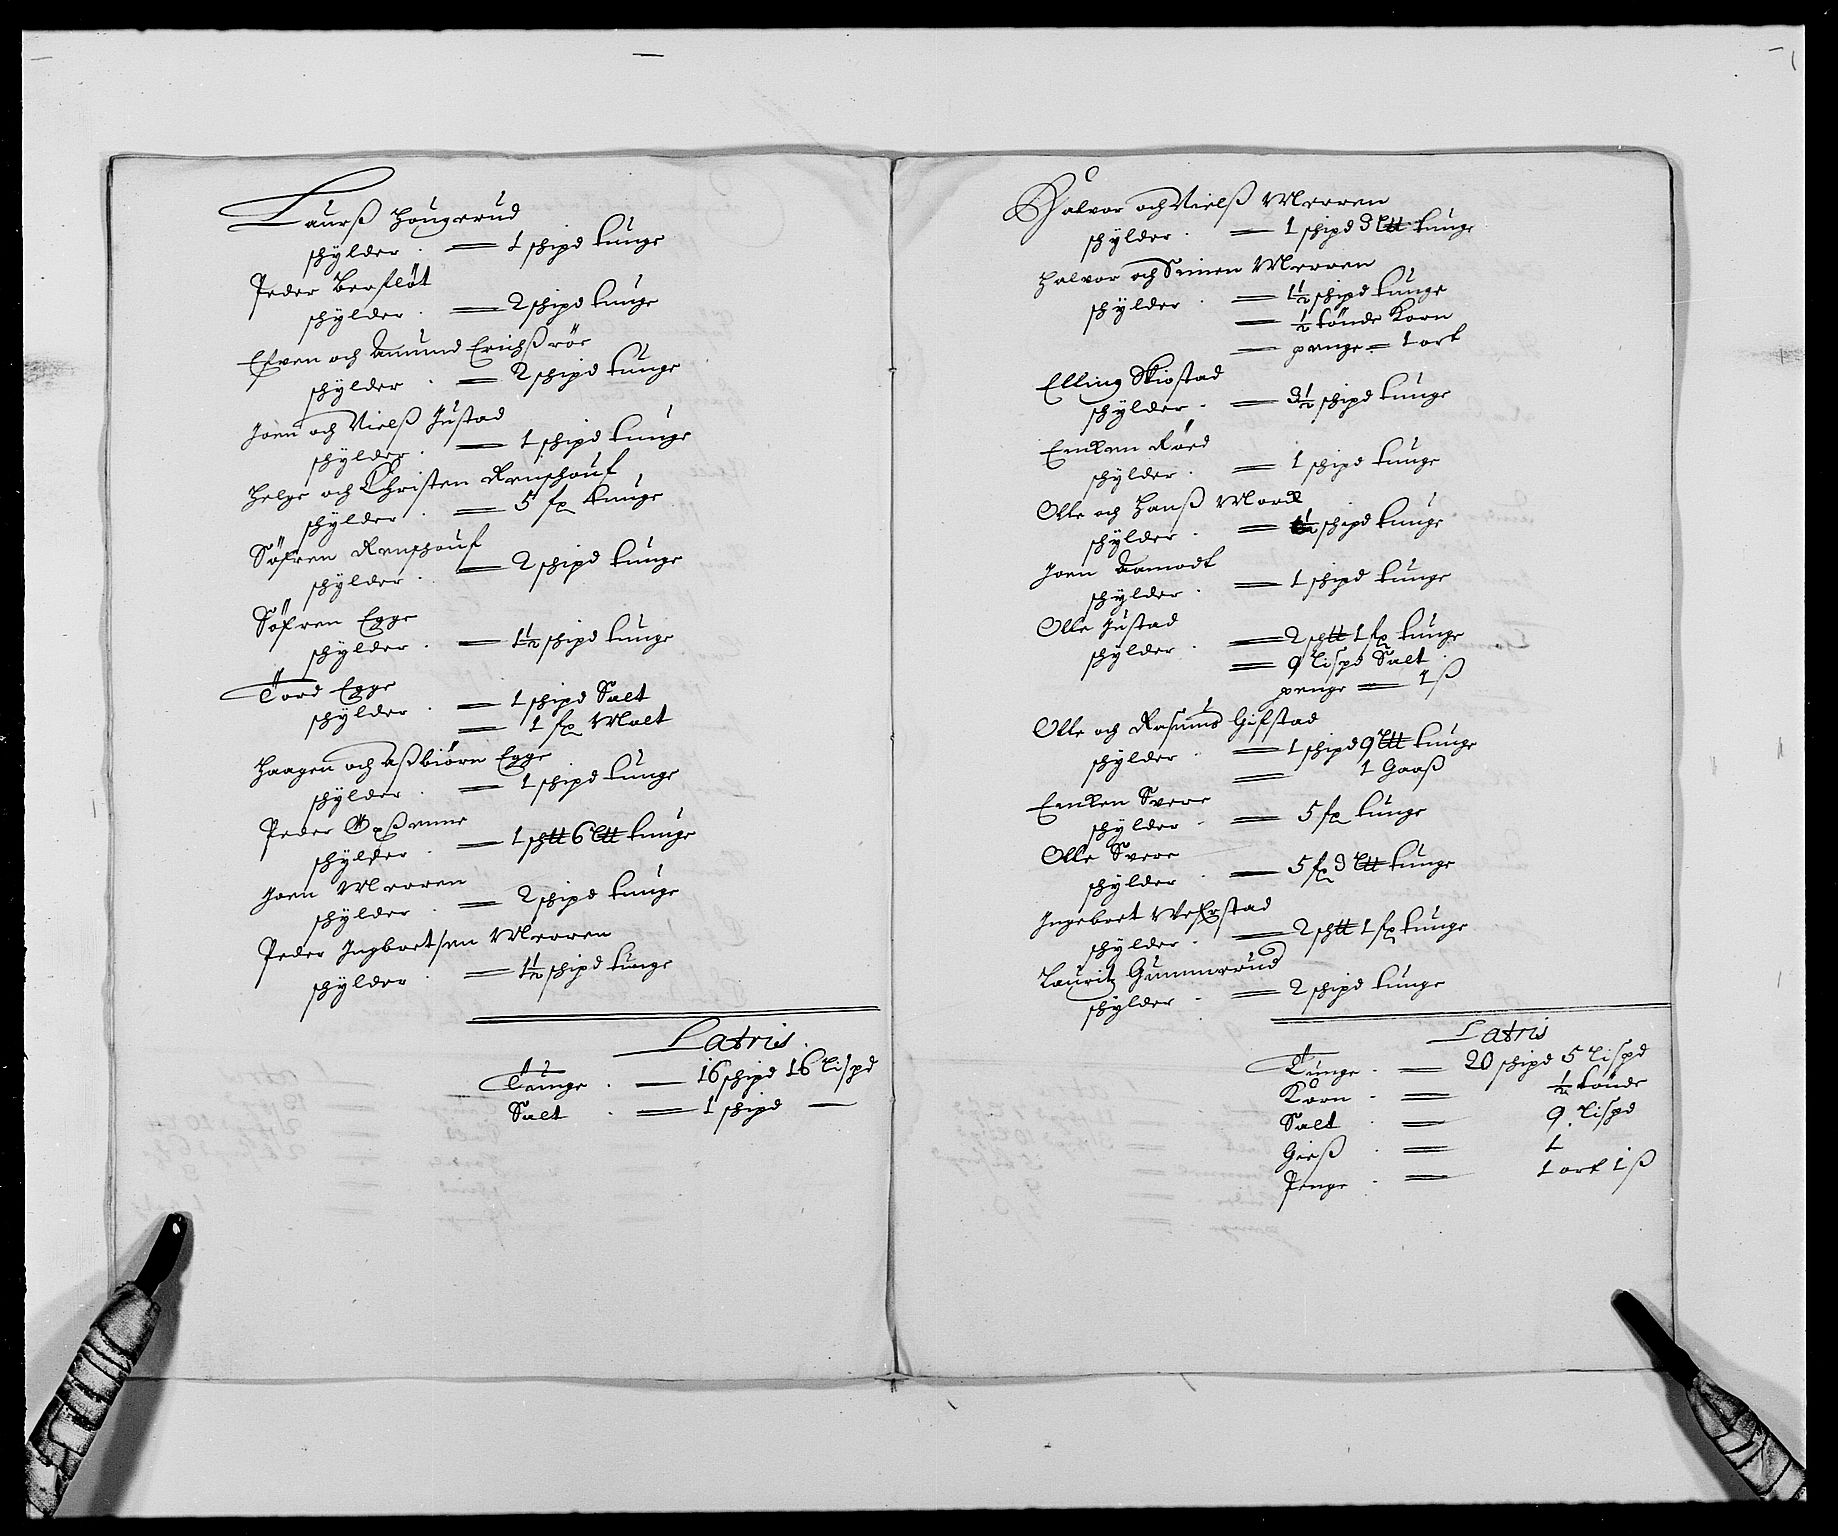 Laurß Hougerud
schÿlder . = 1 schipd tunge
Peder Berfløt
schÿlder . = 2 schipd tunge
Efven och Amund Erichßrör
schÿlder . = 2 schipd tunge
Joen och Nielß Justad
schÿlder . = 1 schipd tunge
Helge och Christen Renschouf
schÿlder . = 5 fg tunge
Söfren Renschouf
schÿlder . = 2 schipd tunge
Söfren Egge
schÿlder . = 1½ schipd tunge
Tord Egge
schÿlder . = 1 schipd Salt
= 1 fg Malt
Haagen och Aßbiörn Egge
schÿlder . = 1 schipd tunge
Peder
schÿlder . = 1 sch℔ 6 L℔ tunge
Joen Merren
schÿlder . = 2 schipd tunge
Peder Ingbretsen Merren
schÿlder . = 1½ schipd tunge
Latris .
Tunge . = 16 schipd 16 Lispd
Salt . = 1 schipd —
Halvor och Nielß Merren
schÿlder . = 1 schipd 3 L℔ tunge
Halvor och Simen Merren
schÿlder . = 1½ schipd tunge
= ½ tönde Korn
= penge = 1 ort
Elling Skiostad
schÿlder . = 3½ schipd tunge
Enken Röed
schÿlder . = 1 schipd tunge
Olle och Hanß Moord
schÿlder . = 1½ schipd tunge
Joen Aamodt
schÿlder . = 1 schipd tunge
Olle Justad
schÿlder . = 2 sch℔ 1 fg tunge
= 9 Lispd Salt .
penge = 1 ß
Olle och Rasmus Gifstad
schÿlder . = 1 schipd 9 L℔ tunge
= 1 Gaaß
Enken Svere
schÿlder . = 5 fg tunge
Olle Svere
schÿlder . = 5 fg 3 L℔ tunge
Ingebret Vefrstad
schÿlder . = 2 sch℔ 1 fg tunge
Lauritz Gummerud
schÿlder . = 2 schipd tunge
Latris
Tunge . = 20 schipd 5 Lispd
Korn . = ½ tönde
Salt . = 9 Lispd
Gieß . = 1
Penge . = 1 ort 1 ß